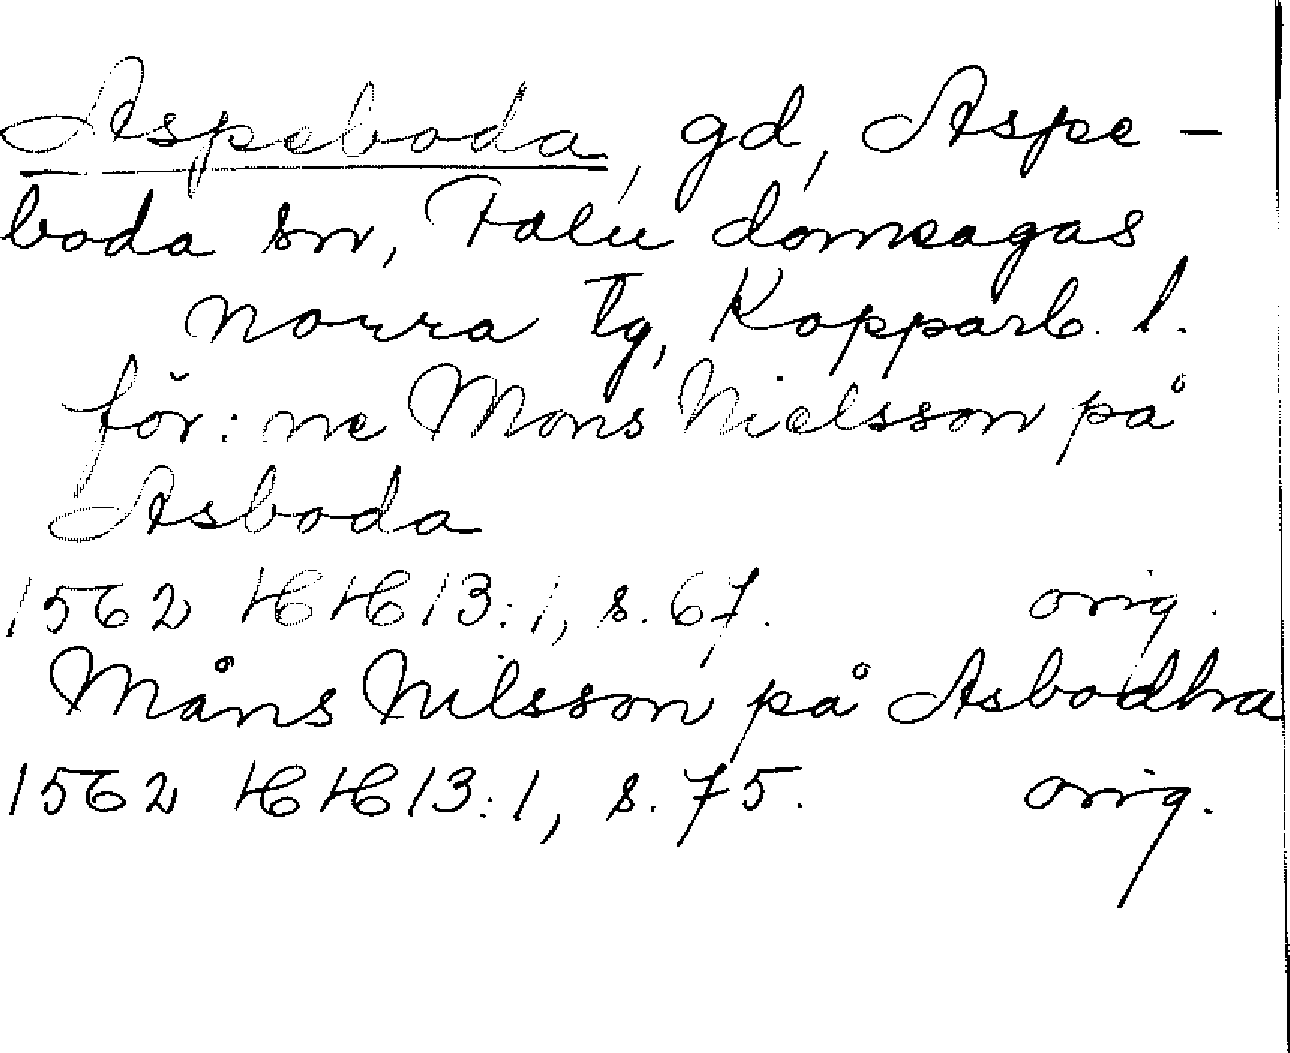 Aspeboda, gd, Aspe-
boda sn, Falu domsagas
norra tg, Kopparb. l.
för: ne Mons Nielsson på
Asboda
1562 HH 13:1, s. 67. orig.
Måns Nilsson på Asbodha
1562 HH 13:1, s. 75. orig.